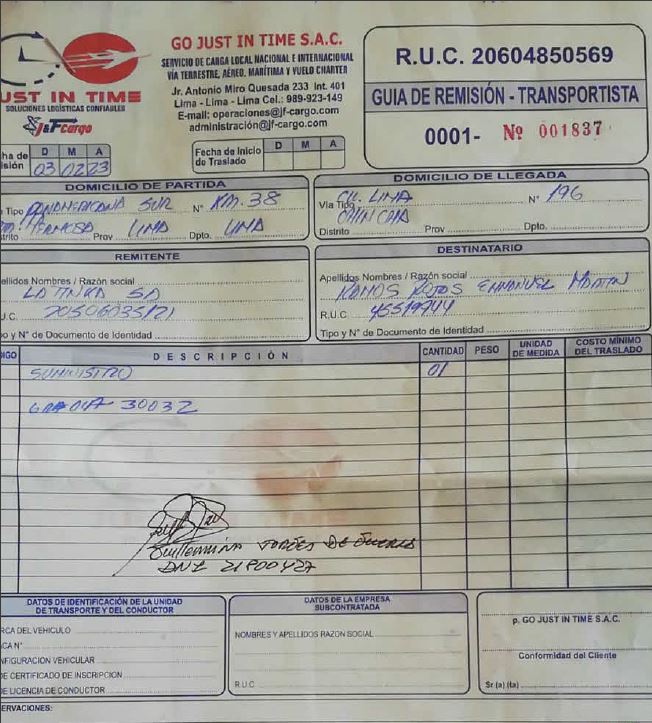 GO JUST IN TIME S.A.C.
SERVICIO DE CARGA LOCAL NACIONAL E INTERNACIONAL
VÍA TERRESTRE, AÉREO, MARÍTIMA Y VUELO CHARTER
Jr. Antonio Miro Quesada 233 Int. 401
Lima - Lima - Lima Cel.: 989-923-149
E-mail: operaciones@jf-cargo.com
administración@jf-cargo.com
UST IN TIME
SOLUCIONES LOGÍSTICAS CONFIABLES
J&F Cargo
R.U.C. 20604850569
GUIA DE REMISIÓN - TRANSPORTISTA
0001- Nº 001837
ha de isión D M A 03 02 23
Fecha de Inicio de Traslado D M A
DOMICILIO DE PARTIDA
Tipo PANAMERICANA SUR Nº KM. 38
trito HERMOSA Prov LIMA Dpto. LIMA
DOMICILIO DE LLEGADA
Vía Tipo CL. LIMA Nº 196
CHINCHA
Distrito Prov Dpto.
REMITENTE
ellidos Nombres / Razón social
LA TINKA SA
U.C. 20506035121
o y N° de Documento de Identidad
DESTINATARIO
Apellidos Nombres / Razón social
RAMOS ROJAS EMMANUEL MARTIN
R.U.C 45519944
Tipo y N° de Documento de Identidad
IGO DESCRIPCIÓN CANTIDAD PESO UNIDAD DE MEDIDA COSTO MÍNIMO DEL TRASLADO
SUMINISTRO 01
30032
Guillermina TORRES DE
DNI 21800427
DATOS DE IDENTIFICACIÓN DE LA UNIDAD
DE TRANSPORTE Y DEL CONDUCTOR
RCA DEL VEHICULO
CA N°
NFIGURACION VEHICULAR
DE CERTIFICADO DE INSCRIPCION
DE LICENCIA DE CONDUCTOR
DATOS DE LA EMPRESA
SUBCONTRATADA
NOMBRES Y APELLIDOS RAZON SOCIAL
R.U.C
p. GO JUST IN TIME S.A.C.
Conformidad del Cliente
Sr (a) (ta)
ERVACIONES: